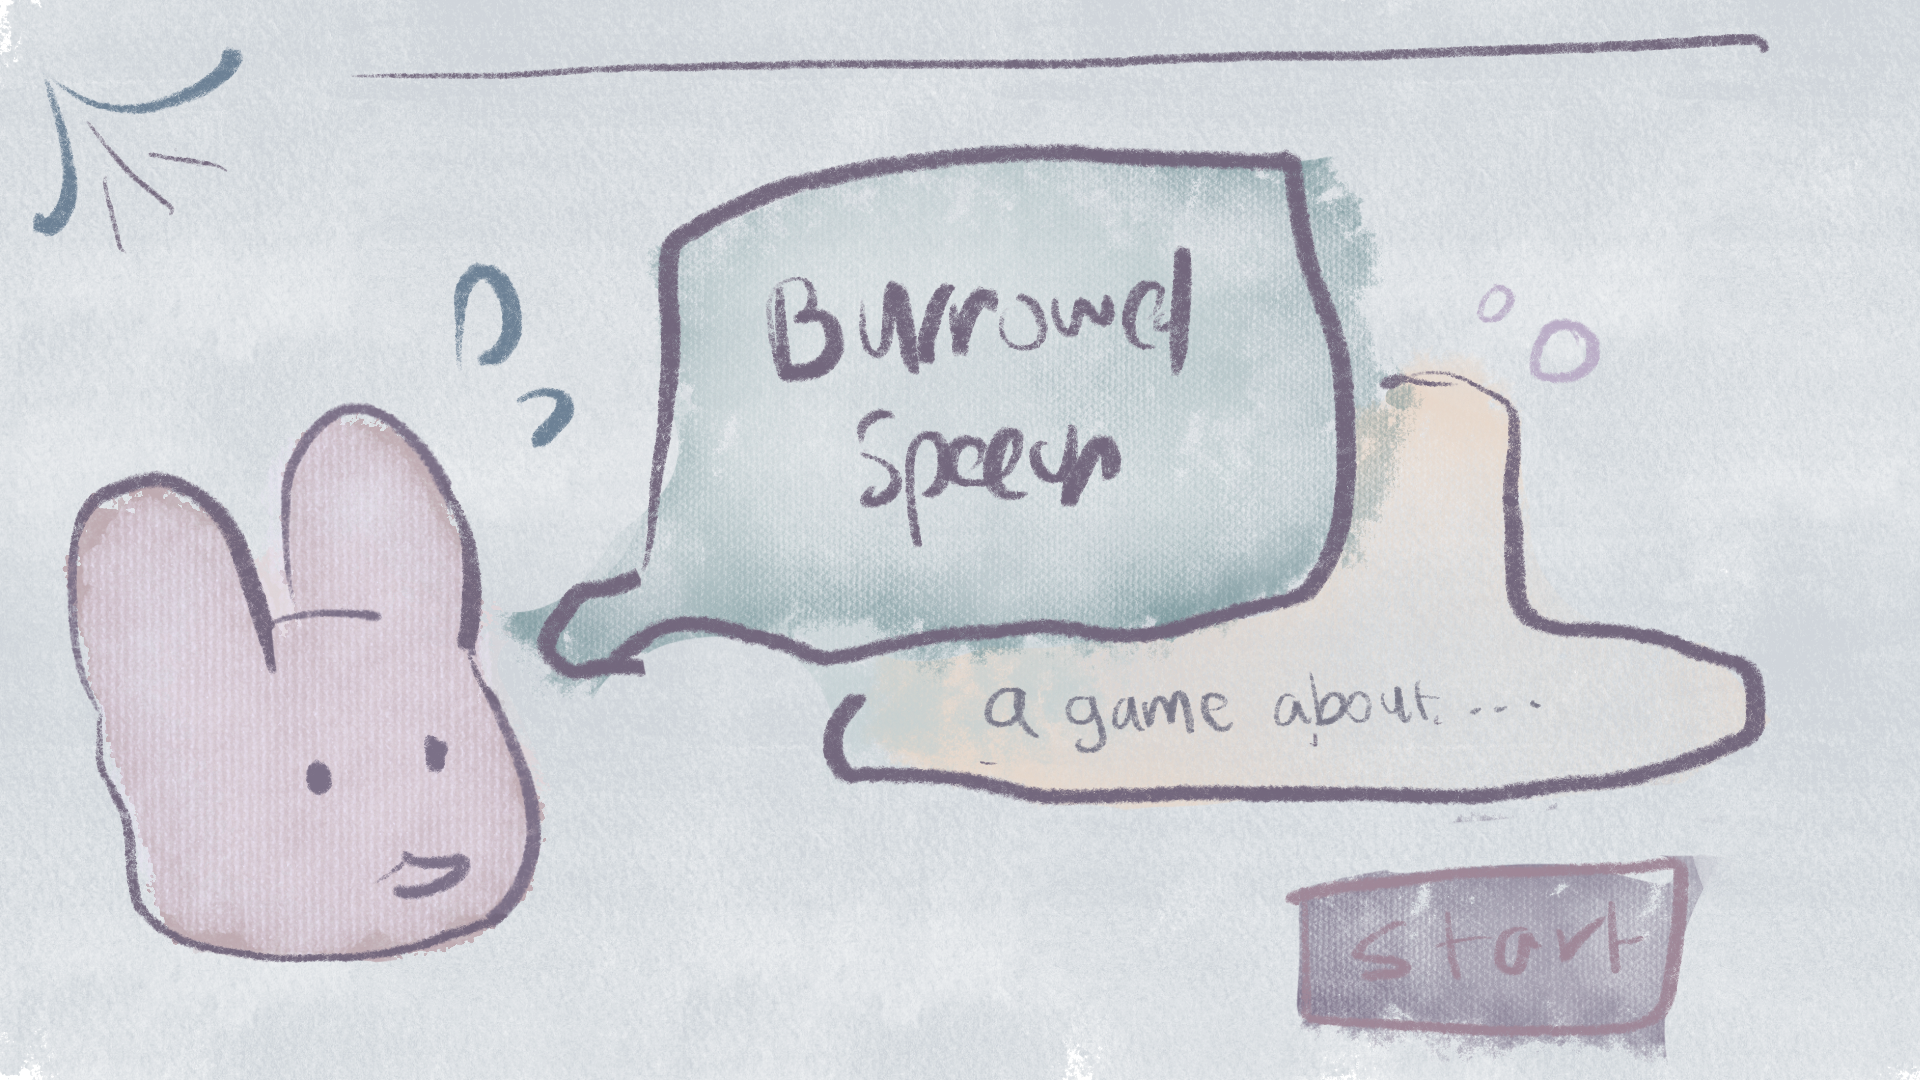 Burrowd
Speech
a game about....
start